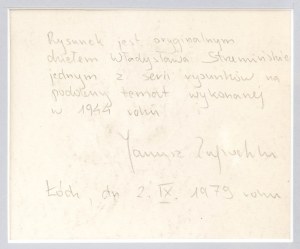 Rysunek jest oryginalnym
dziełem Władysława Strzemińskiego
jednym z serii rysunków na
podobny temat wykonanej
w 1944 roku
Janusz
Łódź, dn 2. IX. 1979 roku